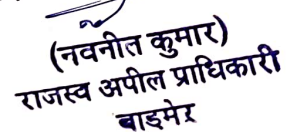 (नवनीत कुमार)
राजस्व अपील प्राधिकारी
बाड़मेर